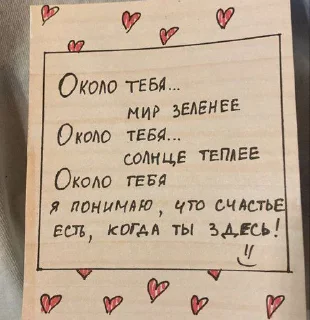 Около тебя...
мир зеленее
Около тебя...
солнце теплее
Около тебя
я понимаю, что счастье
есть, когда ты здесь!